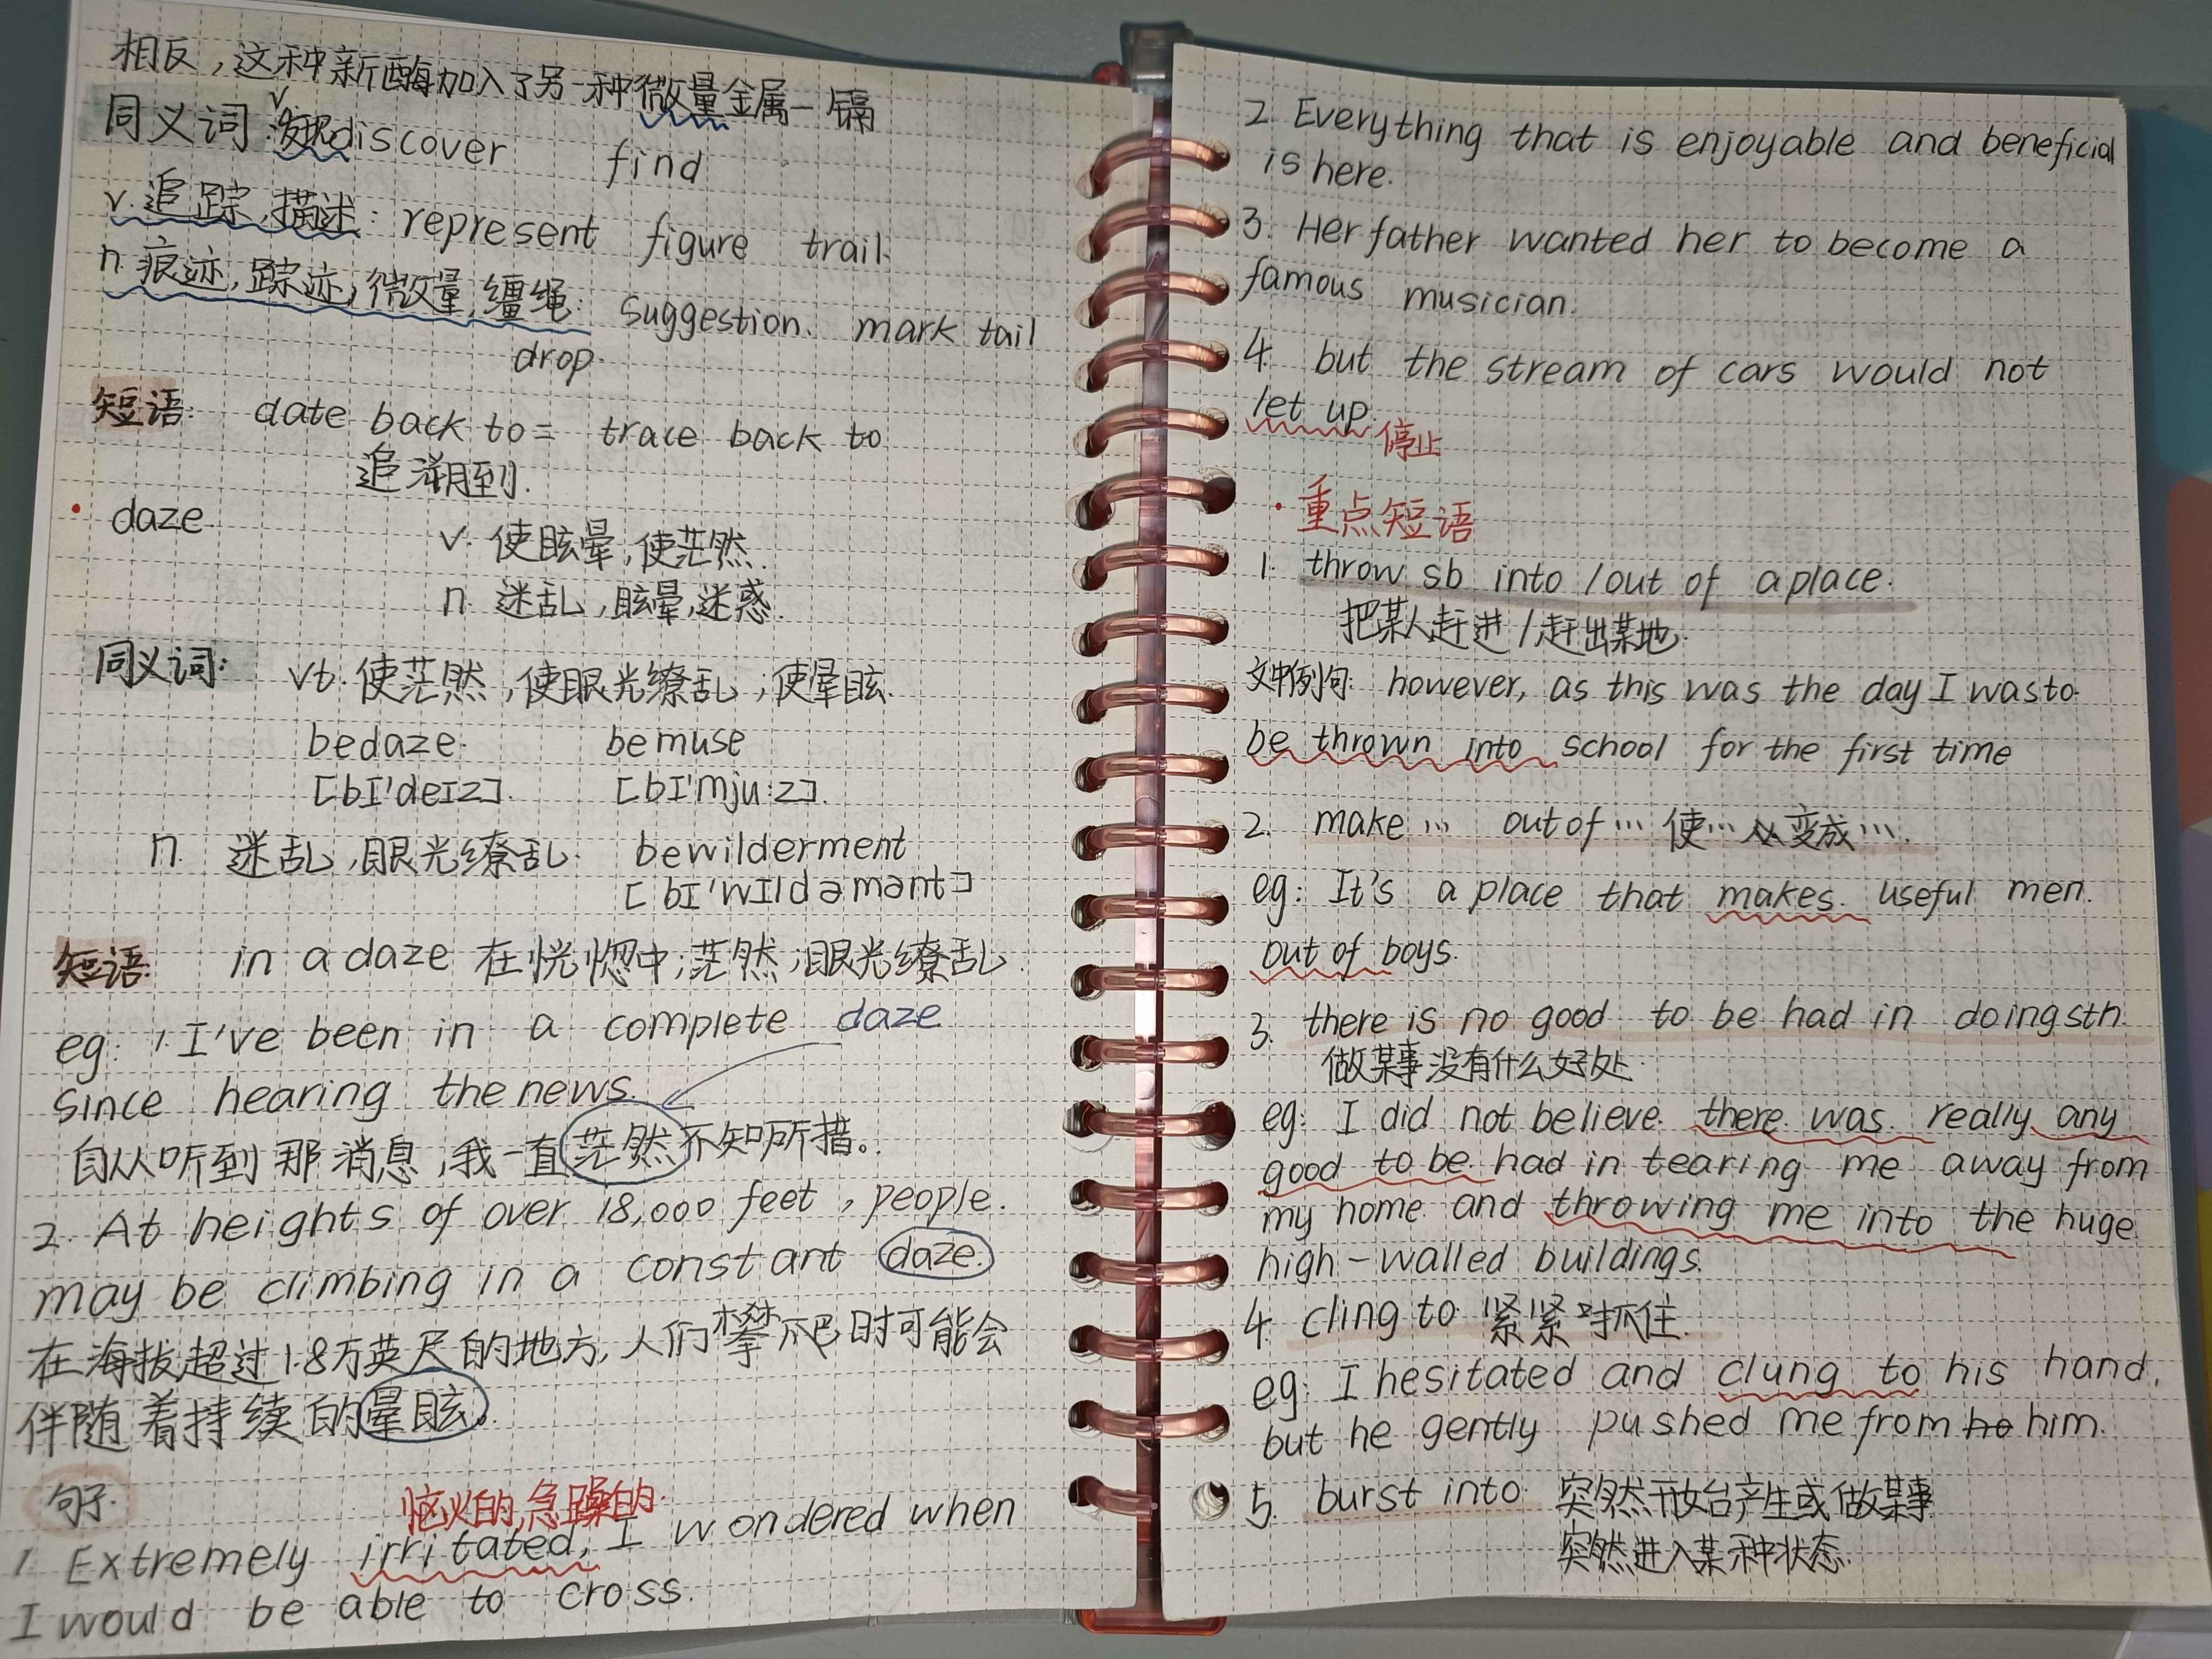 相反，这种新酶加入了另一种微量金属—镉
同义词: v.发现 discover find
v. 追踪,描述: represent figure trail.
n. 痕迹,踪迹,微量,缰绳: suggestion. mark tail
drop.
短语: date back to = trace back to
追溯到.
· daze. v. 使眩晕,使茫然.
n. 迷乱,眩晕,迷惑.
同义词: vt. 使茫然,使眼光缭乱,使晕眩
bedaze. bemuse
[bI'deIz]. [bI'mju:z].
n. 迷乱,眼光缭乱. bewilderment
[bI'wIldəmənt]
短语: in a daze 在恍惚中;茫然;眼光缭乱.
eg: 1 I've been in a complete daze
since hearing the news.
自从听到那消息,我一直茫然不知所措。
2. At heights of over 18,000 feet, people.
may be climbing in a constant daze.
在海拔超过1.8万英尺的地方,人们攀爬时可能会
伴随着持续的晕眩。
句子.
恼火的,急躁的.
1. Extremely irritated, I wondered when
I would be able to cross.
2. Everything that is enjoyable and beneficial
is here.
3. Her father wanted her to become a
famous musician.
4. but the stream of cars would not
let up. 停止
· 重点短语
1. throw sb into / out of a place.
把某人赶进/赶出某地.
文中例句: however, as this was the day I was to.
be thrown into school for the first time
2. make ... out of ... 使...从变成....
eg: It's a place that makes. useful men.
out of boys.
3. there is no good to be had in doing sth.
做某事没有什么好处.
eg: I did not believe. there was. really any
good to be. had in tearing me away from
my home and throwing me into the huge
high-walled buildings.
4. cling to. 紧紧抓住.
eg: I hesitated and clung to his hand,
but he gently pushed me from him.
5. burst into. 突然开始产生或做某事
突然进入某种状态.